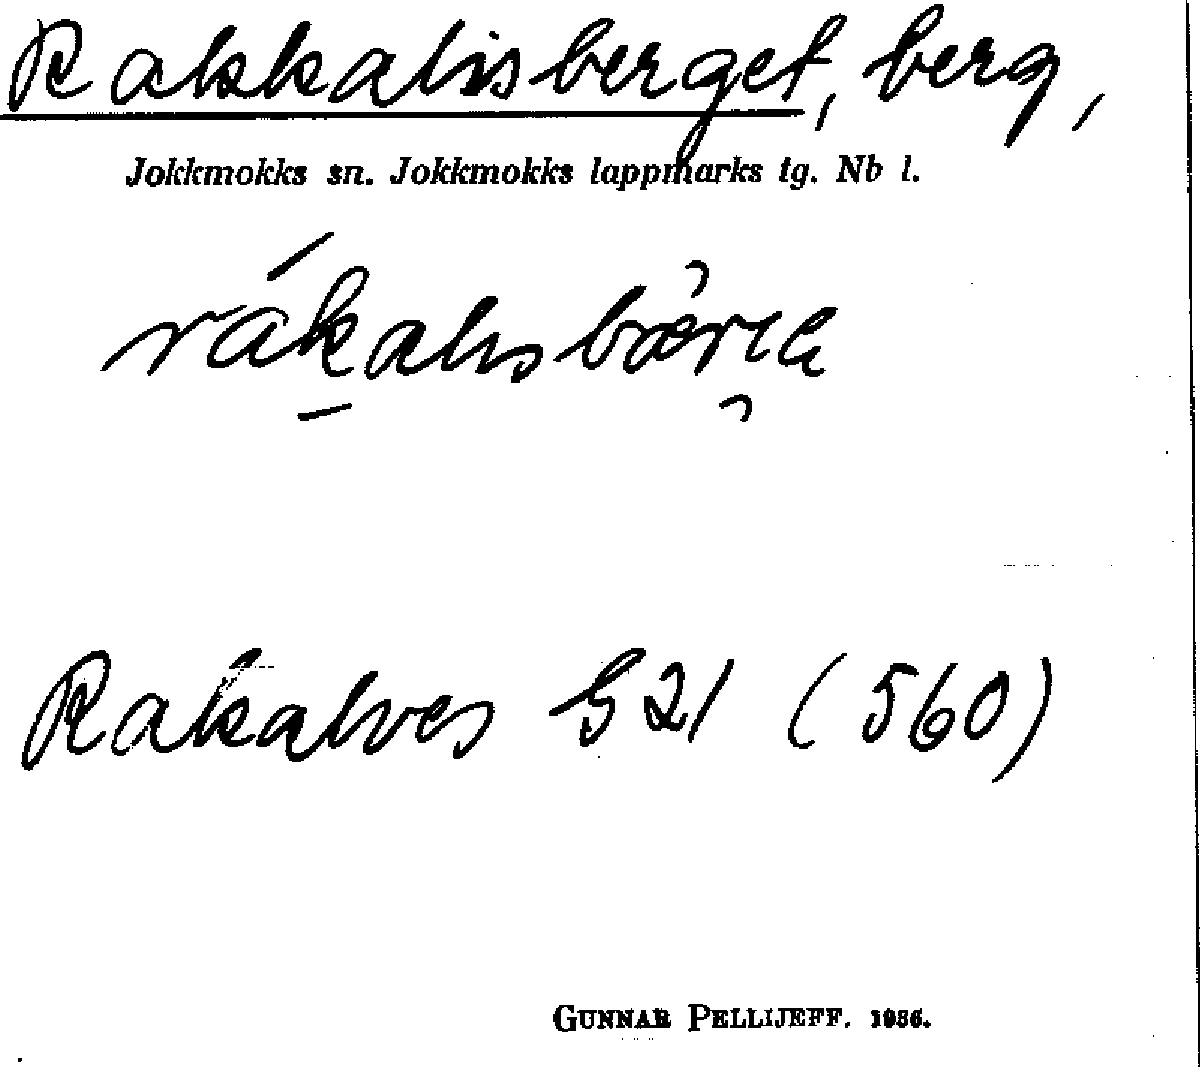 Rakkalisberget, berg,
Jokkmokks sn. Jokkmokks lappmarks tg. Nb l.
Rakalves G21 (560)
GUNNAR PELLIJEFF. 1936.